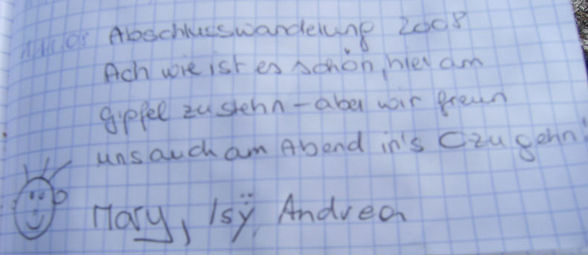 Abschlusswanderung 2008
Ach wie ist es schön, hier am
Gipfel zu stehn – aber wir freun
uns auch am Abend in's C zu gehn!
Mary, Isÿ, Andrea